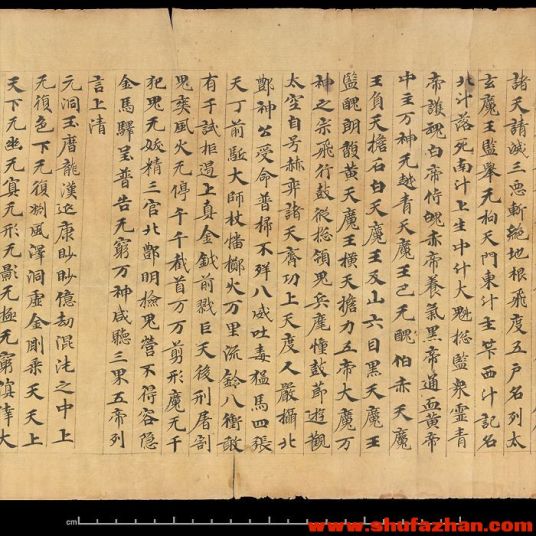 諸天請滅三惡斬絕地根飛度五戶名列太
玄魔王監舉无拘天門東斗主筭西斗記名
北斗落死南斗上生中斗大魁惣監眾靈青
帝護魂白帝侍魄赤帝養氣黑帝通血黃帝
中主万神无越青天魔王巴无醜伯赤天魔
王負天擔石白天魔王反山六目黑天魔王
監醜朗馥黃天魔王橫天擔力五帝大魔万
神之宗飛行鼓從惣領鬼兵麾幢鼓節遊觀
太空自号赫弈諸天齊功上天度人嚴攝北
酆神公受命普掃不祥八威吐毒猛馬四張
天丁前駈大師杖幡擲火万里流鈴八衝敢
有干試拒遏上真金鉞前戮巨天後刑屠割
鬼爽風火无停千千截首万万剪形魔无干
犯鬼无妖精三官北酆明檢鬼營不得容隱
金馬驛呈普告无窮万神咸聽三界五帝列
言上清
元洞玉曆龍漢延康眇眇億劫混沌之中上
无復色下无復渕風澤洞虛金剛乘天天上
天下无幽无冥无形无影无極无窮溟涬大
cm
www.shufazhan.com